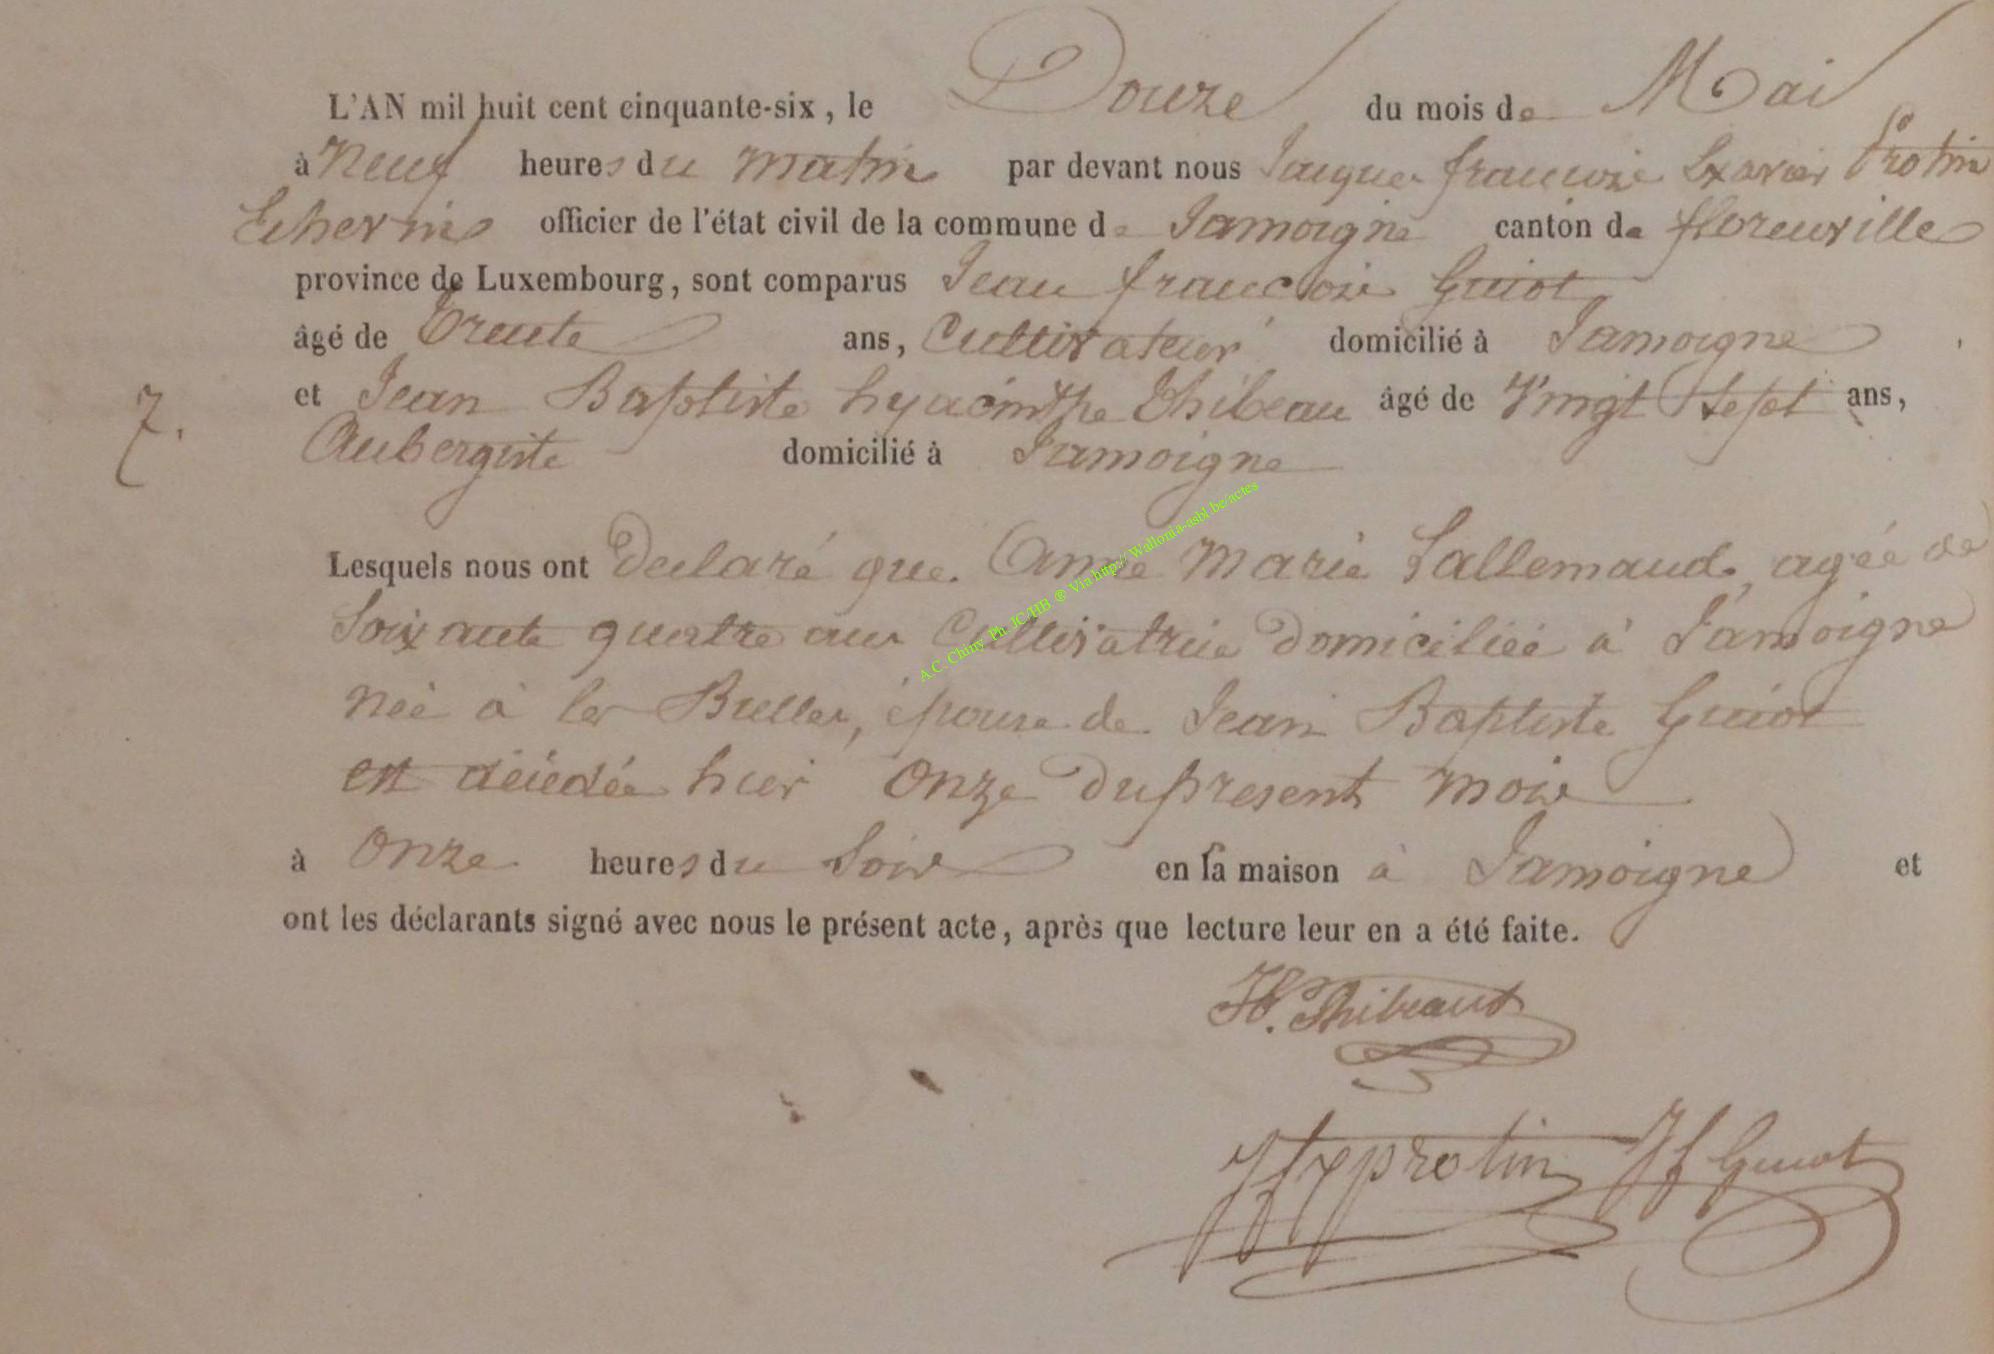 L'AN mil huit cent cinquante-six, le Douze du mois de Mai
à Neuf heures du matin par devant nous Jacques francois Exavier Protin
Echevin officier de l'état civil de la commune de Jamoigne canton de florenville
province de Luxembourg, sont comparus Jean francois Guiot
âgé de Trente ans, Cultivateur domicilié à Jamoigne
et Jean Baptiste hyacinthe Thibeau âgé de Vingt Sept ans,
7.
Aubergiste domicilié à Jamoigne
Lesquels nous ont Declaré que Anne Marie Lallemand, agée de
Soixante quatre ans Cultivatrice Domiciliée à Jamoigne
née à les Bulles, épouse de Jean Baptiste Guiot
est décédée hier Onze du present mois
à Onze heures du Soir en sa maison à Jamoigne et
ont les déclarants signé avec nous le présent acte, après que lecture leur en a été faite.
H. Thibeaut
JfxProtin Jf Guiot
A.C. Chiny Ph. JC/HB ® Via http://Wallonia-asbl.be/actes